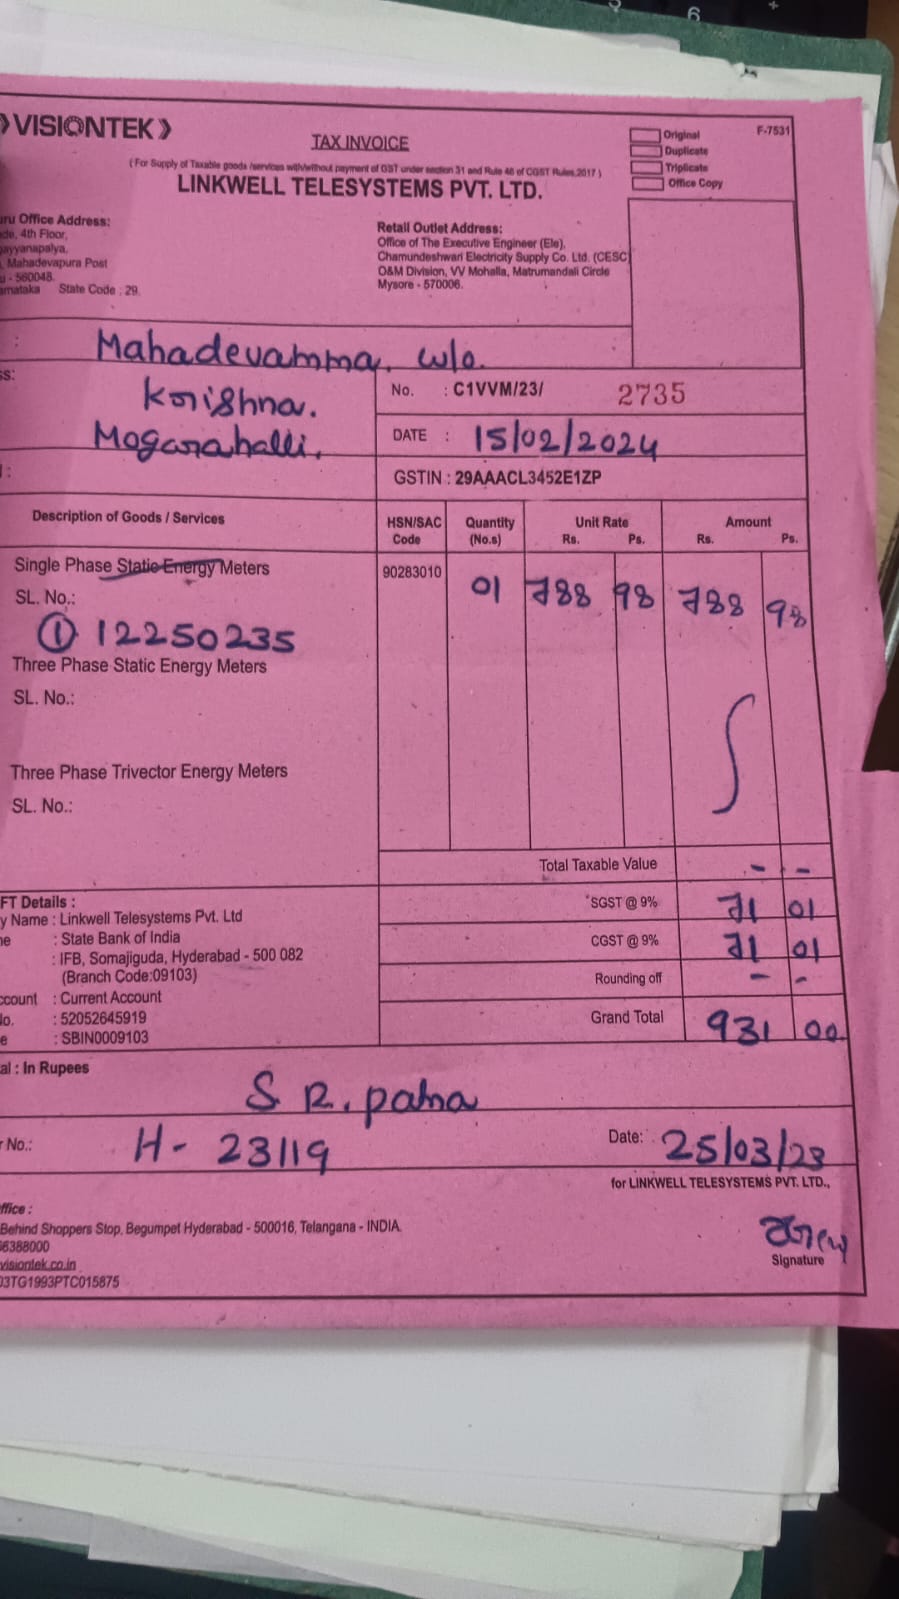 VISIONTEK
TAX INVOICE
( For Supply of Taxable goods /services with/without payment of GST under section 31 and Rule 46 of CGST Rules,2017 )
LINKWELL TELESYSTEMS PVT. LTD.
Original
Duplicate
Triplicate
Office Copy
F-7531
ru Office Address:
de, 4th Floor,
ayyanapalya,
, Mahadevapura Post
u - 560048.
arnataka State Code : 29.
Retail Outlet Address:
Office of The Executive Engineer (Ele),
Chamundeshwari Electricity Supply Co. Ltd. (CESC
O&M Division, VV Mohalla, Matrumandali Circle
Mysore - 570006.
: Mahadevamma, w/o.
ss: Krishna.
Mogarahalli,
No. : C1VVM/23/ 2735
DATE : 15/02/2024
GSTIN : 29AAACL3452E1ZP
Description of Goods / Services HSN/SAC Code Quantity (No.s) Unit Rate Rs. Ps. Amount Rs. Ps.
Single Phase Static Energy Meters 90283010 01 788 98 788 98
SL. No.:
① 12250235
Three Phase Static Energy Meters
SL. No.:
Three Phase Trivector Energy Meters
SL. No.:
Total Taxable Value - -
SGST @ 9% 71 01
CGST @ 9% 71 01
Rounding off - -
Grand Total 931 00
FT Details :
y Name : Linkwell Telesystems Pvt. Ltd
ne : State Bank of India
: IFB, Somajiguda, Hyderabad - 500 082
(Branch Code:09103)
ccount : Current Account
No. : 52052645919
e : SBIN0009103
al : In Rupees
S R. patna
r No.: H- 23119 Date: 25/03/23
for LINKWELL TELESYSTEMS PVT. LTD.,
ffice :
Behind Shoppers Stop, Begumpet Hyderabad - 500016, Telangana - INDIA.
66388000
visiontek.co.in
03TG1993PTC015875
Signature